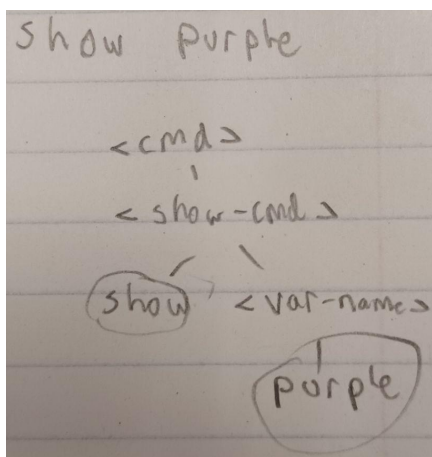 show purple
<cmd>
<show-cmd>
show <var-name>
purple